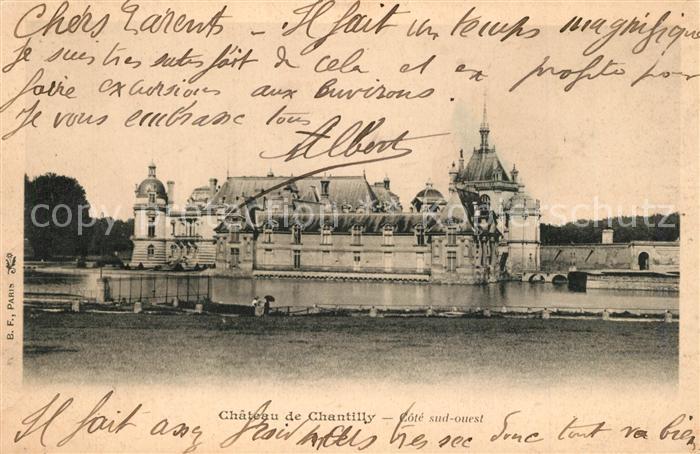 Chers Parents - Il fait un temps magnifique
Je suis tres satisfait de cela et en profite pour
faire excursions aux environs.
Je vous embrasse tous
Albert
B. F., PARIS
Château de Chantilly — Côté sud-ouest
Il fait assez froid mais tres sec donc tout va bien